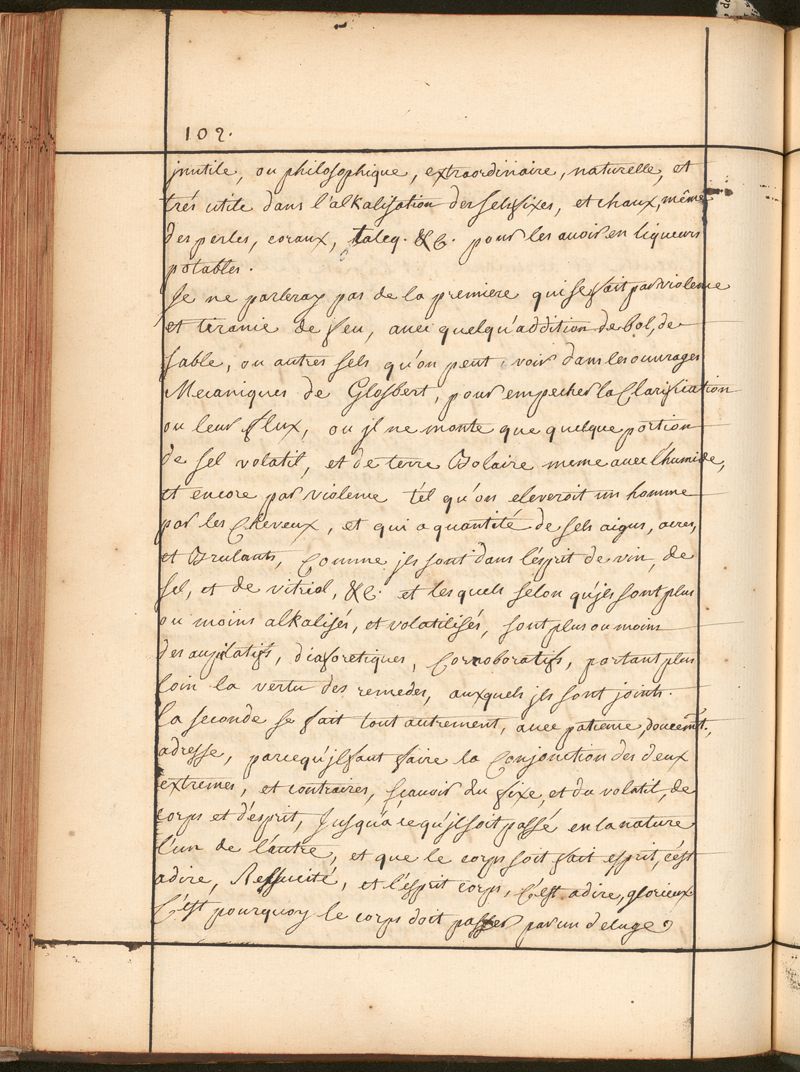 102.
jnutile, ou philosophique, extraordinaire, naturelle, et
trés utile dans l'alkalisation des sels fixes, et chaux, même
des perles, coraux, talcq. &c. pour les avoir en liqueurs
potables.
Je ne parleray pas de la premiere qui se fait par violence
et tiranie de feu, avec quelqu'addition de bol, de
sable, ou autres sels qu'on peut voir dans les ouvrages
Mecaniques de Glosbert, pour empecher la Clarification
ou leur flux, ou jl ne monte que quelque portion
de sel volatil, et de terre Solaire meme avec l'humide,
et encore par violence tél qu'on eleveroit un homme
par les Cheveux, et qui a quantité de sels aigus, acres,
et Brulants, Comme jls sont dans l'esprit de vin, de
sel, et de vitriol, &c. et lesquels selon qu'jls sont plus
ou moins alkalisés, et volatilisés, sont plus ou moins
des aupilatifs, diaforetiques, Corroboratifs, portant plus
loin la vertu des remedes, auxquels jls sont joints.
la seconde se fait tout autrement, avec patience, doucem̃t,
adresse, parcequ'jl faut faire la Conjonction des deux
extremes, et contraires, sçavoir du fixe, et du volatil, de
corps et d'esprit, Jusqu'a ce qu'jl soit passé en la nature
l'un de l'autre, et que le corps soit fait esprit, c'est
adire, Ressucité, et l'esprit corps, C'est adire, glorieux
C'est pourquoy le corps doit passer par un deluge